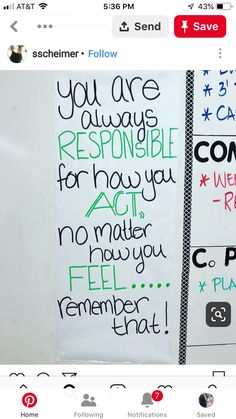 AT&T
5:36 PM
43%
Send
Save
sscheimer • Follow
you are
always
RESPONSIBLE
for how you
ACT,
no matter
how you
FEEL.....
remember
that!
* 3'
* CA
CON
* WE
-RE
C. P
* PLA
Home
Following
7
Notifications
Saved